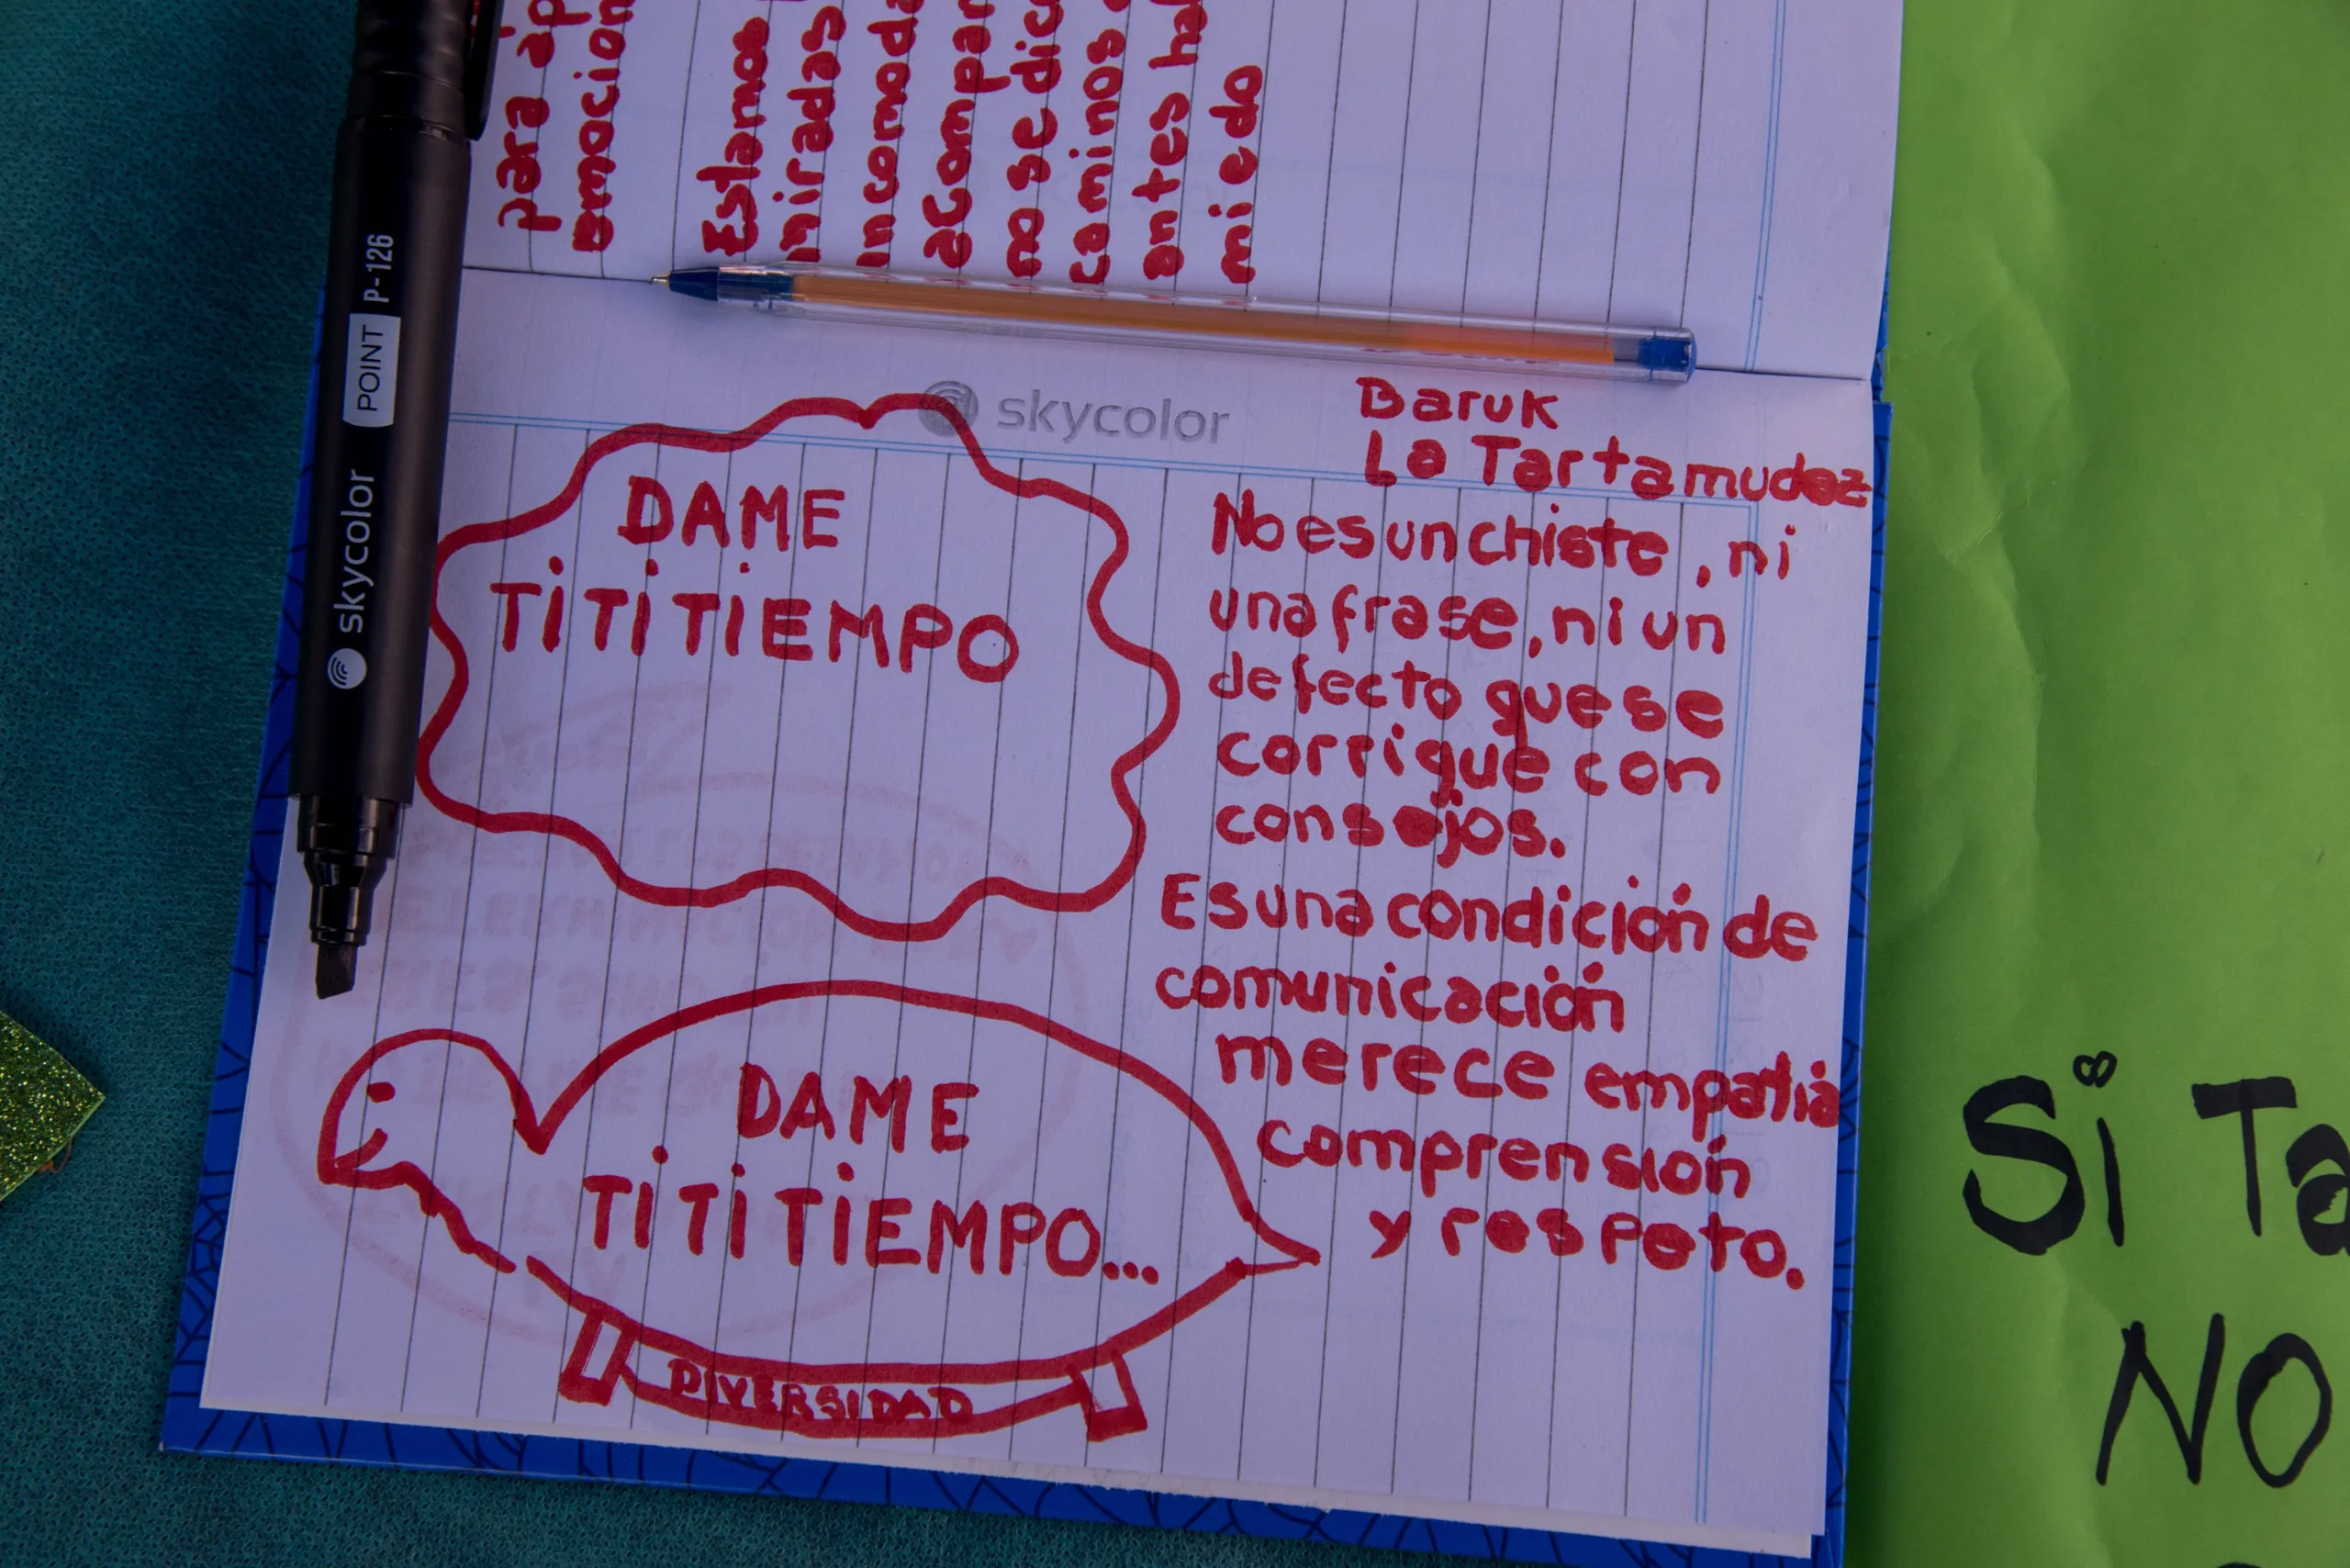 para
emocion
Estamos
miradas
incomoda
acompañ
no se dic
caminos
antes ha
miedo
skycolor POINT P-126
skycolor
Baruk
La Tartamudez
No es un chiste, ni
una frase, ni un
defecto que se
corrigue con
consejos.
Es una condición de
comunicación
merece empatía
comprensión
y respeto.
DAME
TiTiTiEMPO
DAME
TiTiTiEMPO...
DIVERSIDAD
Si Ta
NO